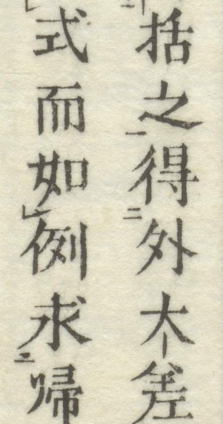 括之㆒得㆓外大差
式而如㆑例求㆓歸